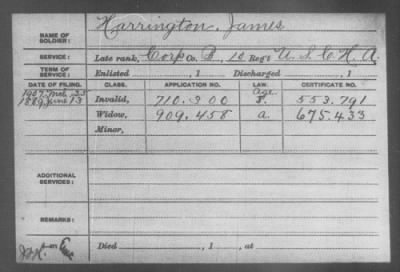 NAME OF SOLDIER: Harrington, James
SERVICE: Late rank, Corp Co. B, 10 Reg't U. S. C. H. A.
TERM OF SERVICE: Enlisted , 1 Discharged , 1
DATE OF FILING. CLASS. APPLICATION NO. LAW. CERTIFICATE NO.
1907, Age
1889, June 13 Invalid, 710.300 553.791
Widow, 909.458 a. 675.433
Minor,
ADDITIONAL SERVICES:
REMARKS:
Died , 1 , at